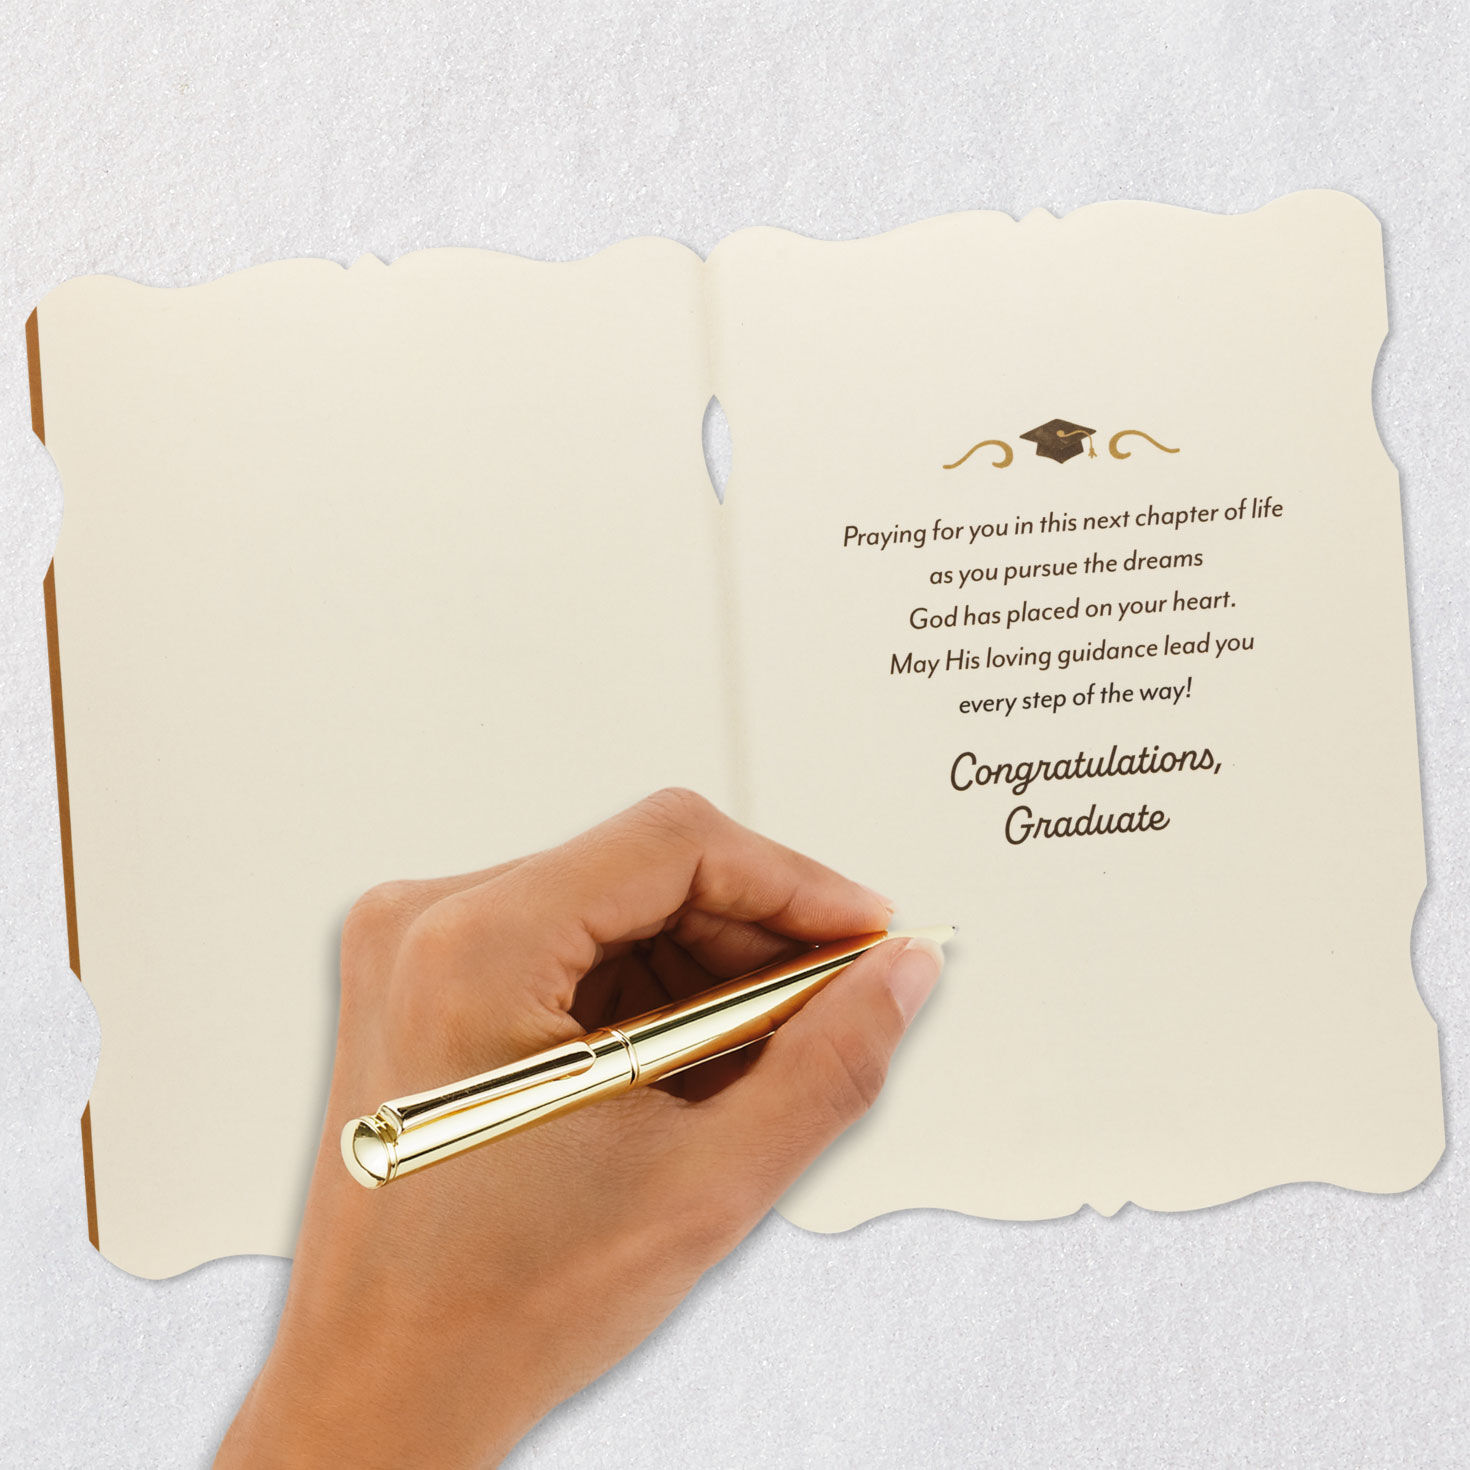 Praying for you in this next chapter of life
as you pursue the dreams
God has placed on your heart.
May His loving guidance lead you
every step of the way!
Congratulations,
Graduate